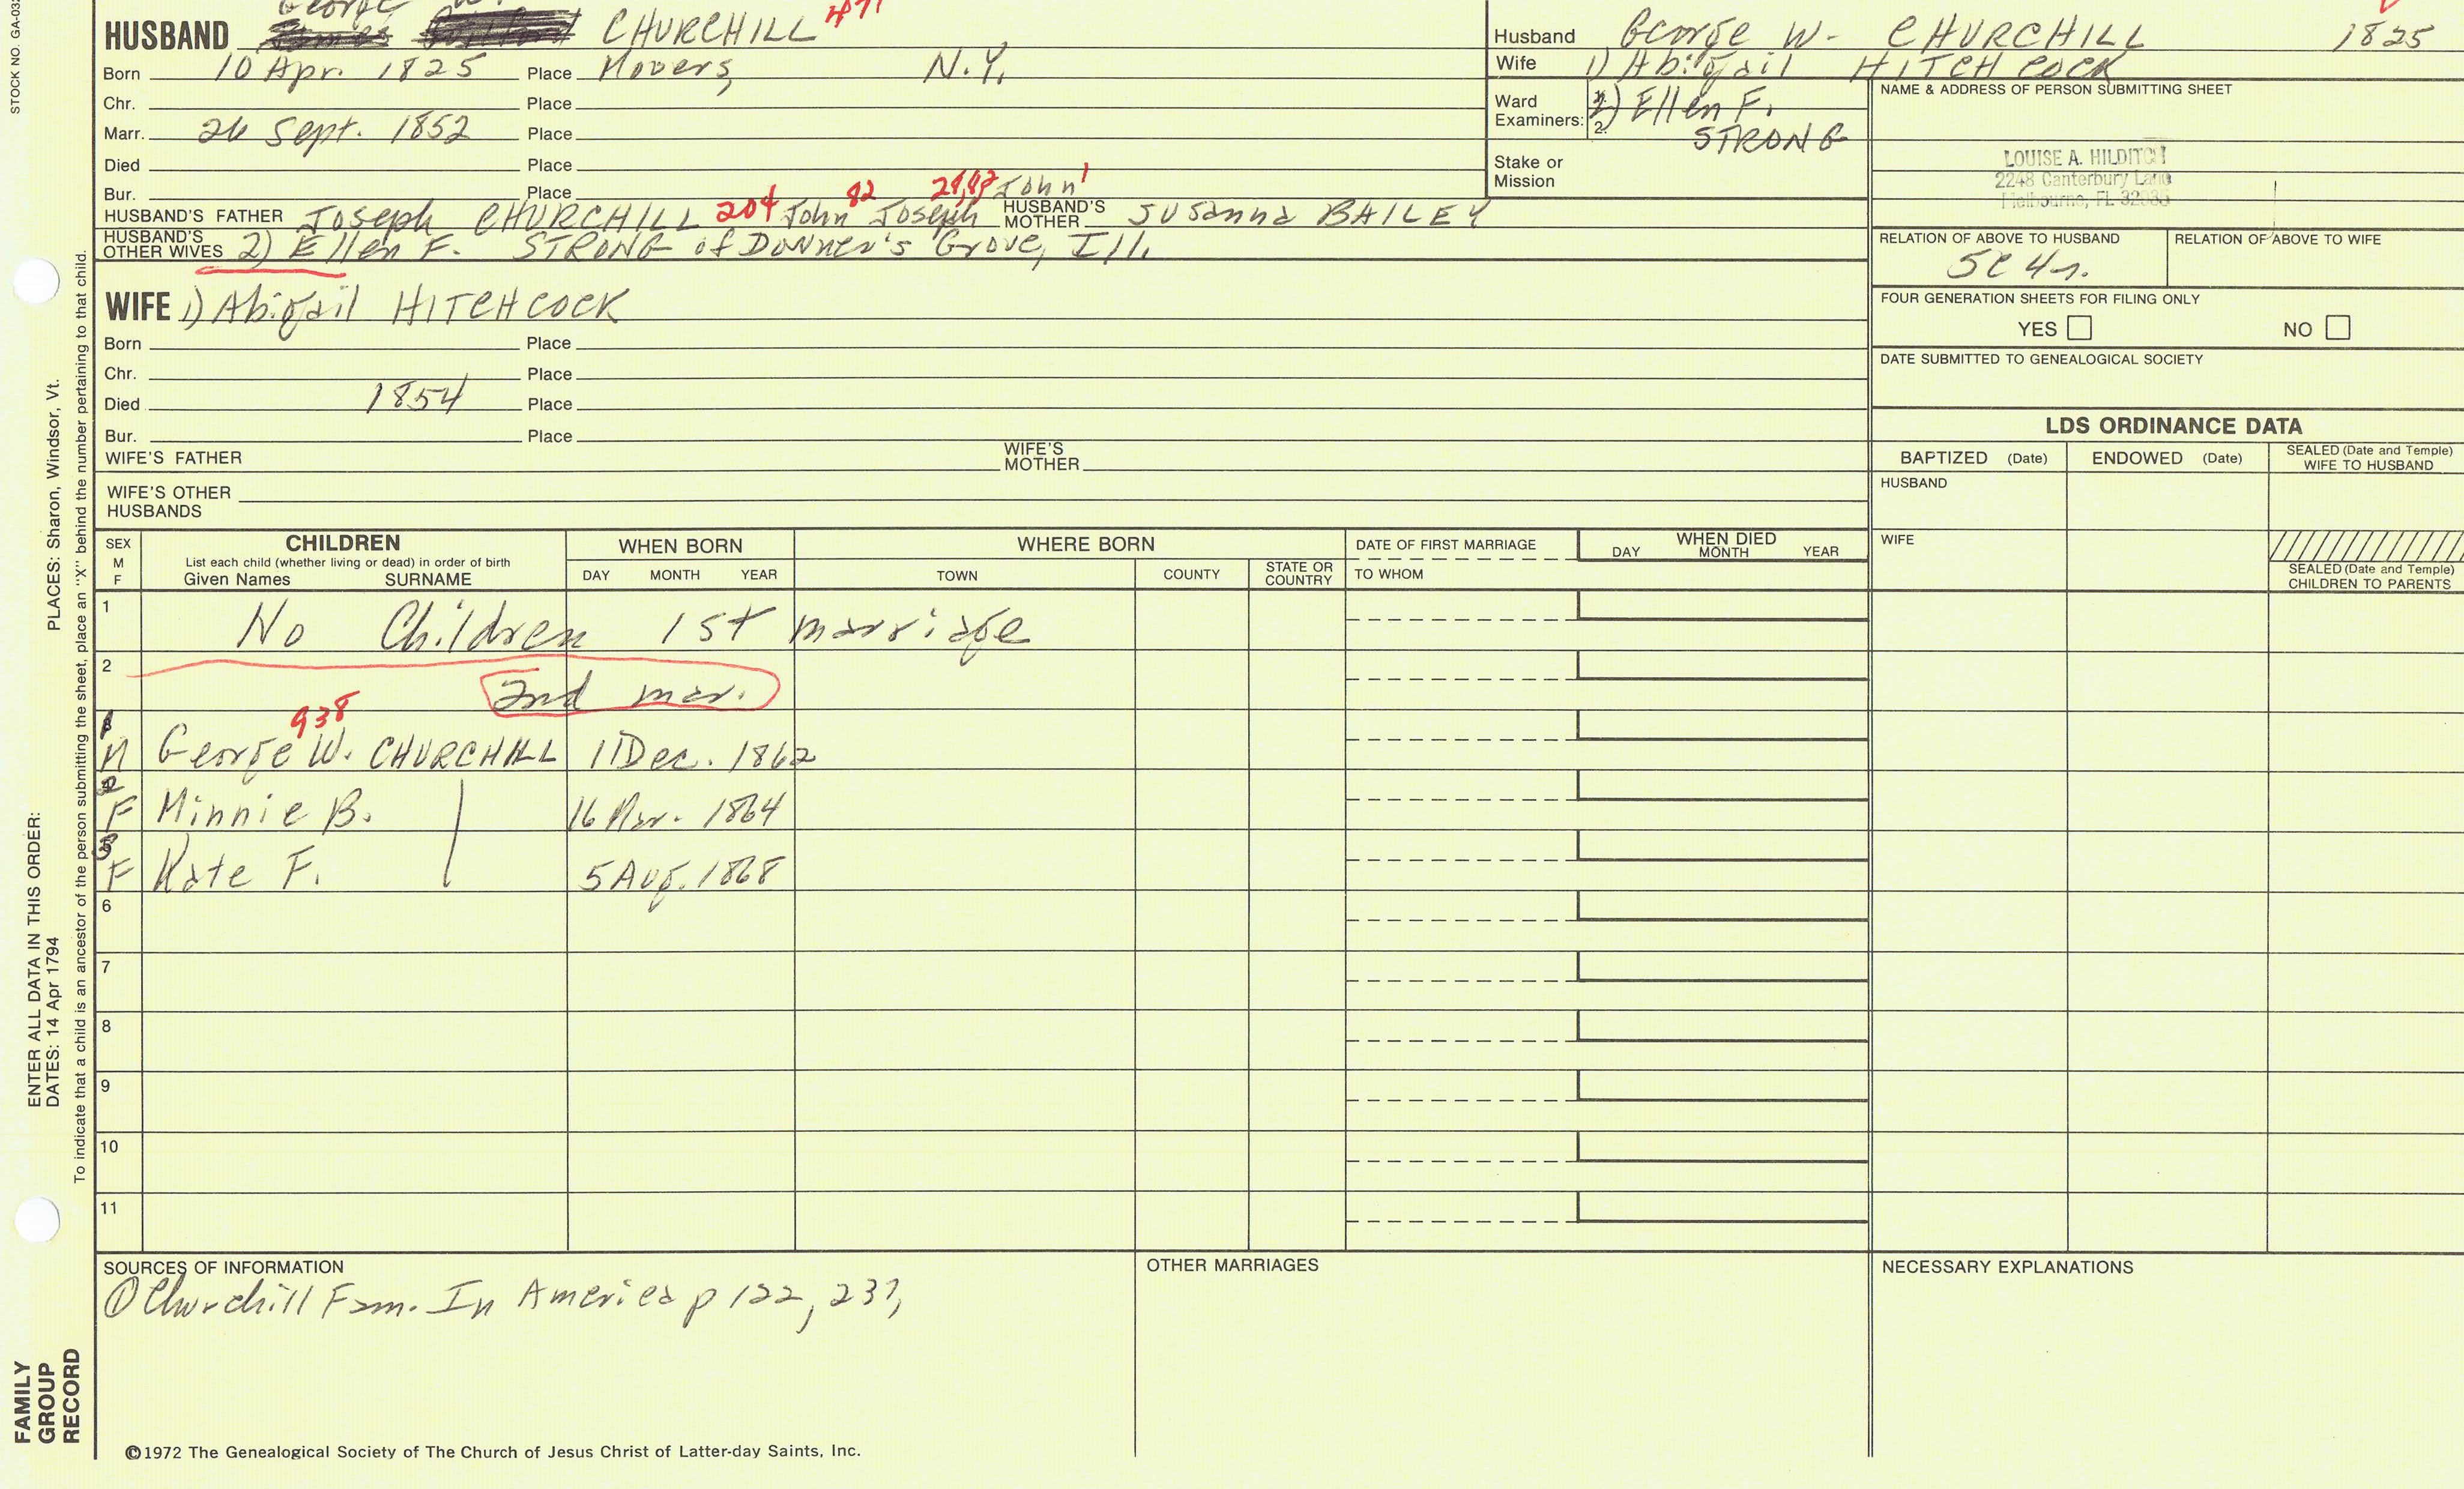 STOCK NO. GA-03
George W.
HUSBAND CHURCHILL 471
Born 10 Apr. 1825 Place Mooers, N.Y.
Chr. Place
Marr. 26 Sept. 1852 Place
Died Place
Bur. Place
HUSBAND'S FATHER Joseph CHURCHILL 204 John 82 Joseph John 1 HUSBAND'S MOTHER Susanna BAILEY
HUSBAND'S OTHER WIVES 2) Ellen F. STRONG of Downer's Grove, Ill.
WIFE 1) Abigail HITCHCOCK
Born Place
Chr. Place
Died 1854 Place
Bur. Place
WIFE'S FATHER WIFE'S MOTHER
WIFE'S OTHER HUSBANDS
Husband George W. CHURCHILL 1825
Wife 1) Abigail HITCHCOCK
Ward Examiners: 2) Ellen F.
2. STRONG
Stake or Mission
NAME & ADDRESS OF PERSON SUBMITTING SHEET
LOUISE A. HILDITCH
2248 Canterbury Lane
Melbourne, FL 32935
RELATION OF ABOVE TO HUSBAND RELATION OF ABOVE TO WIFE
5C 4r.
FOUR GENERATION SHEETS FOR FILING ONLY
YES NO
DATE SUBMITTED TO GENEALOGICAL SOCIETY
LDS ORDINANCE DATA
BAPTIZED (Date) ENDOWED (Date) SEALED (Date and Temple) WIFE TO HUSBAND
HUSBAND
WIFE
SEALED (Date and Temple) CHILDREN TO PARENTS
SEX M F CHILDREN WHEN BORN WHERE BORN DATE OF FIRST MARRIAGE WHEN DIED
List each child (whether living or dead) in order of birth
Given Names SURNAME DAY MONTH YEAR TOWN COUNTY STATE OR COUNTRY TO WHOM DAY MONTH YEAR
1 No Children 1st marriage
2 2nd mar.
938
1 M George W. CHURCHILL 11 Dec. 1862
2 F Minnie B. 16 Mar. 1864
3 F Kate F. 5 Aug. 1868
6
7
8
9
10
11
SOURCES OF INFORMATION OTHER MARRIAGES NECESSARY EXPLANATIONS
① Churchill Fam. In America p 122, 237,
©1972 The Genealogical Society of The Church of Jesus Christ of Latter-day Saints, Inc.
FAMILY GROUP RECORD
ENTER ALL DATA IN THIS ORDER:
DATES: 14 Apr 1794 PLACES: Sharon, Windsor, Vt.
To indicate that a child is an ancestor of the person submitting the sheet, place an "X" behind the number pertaining to that child.